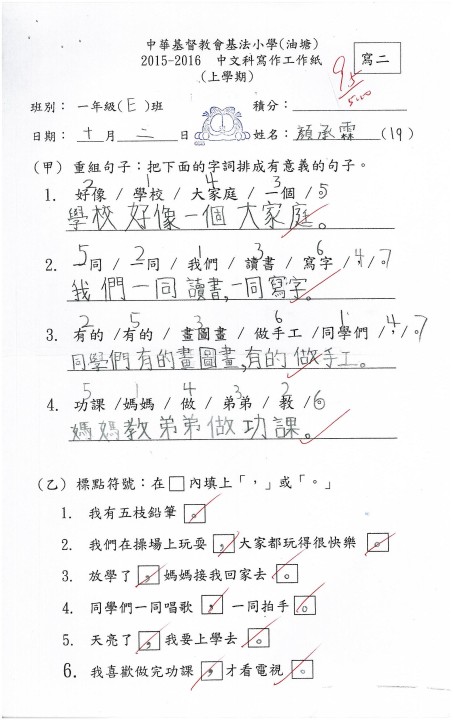 中華基督教會基法小學(油塘)
2015-2016 中文科寫作工作紙
(上學期)
寫二
95
班別： 一年級(E)班 積分：
日期： 十 月 二 日 姓名： 顏承霖 (19)
(甲) 重組句子：把下面的字詞排成有意義的句子。
2 1 4 3 5
1. 好像 / 學校 / 大家庭 / 一個 / 。
學校好像一個大家庭。
5 2 1 3 6 4 7
2. 同 / 一同 / 我們 / 讀書 / 寫字 / ， / 。
我們一同讀書，一同寫字。
2 5 3 6 1 4 7
3. 有的 /有的 / 畫圖畫 / 做手工 /同學們 / ， / 。
同學們有的畫圖畫，有的做手工。
5 1 4 3 2 6
4. 功課 /媽媽 / 做 / 弟弟 / 教 / 。
媽媽教弟弟做功課。
(乙) 標點符號：在□內填上「，」或「。」
1. 我有五枝鉛筆 。
2. 我們在操場上玩耍 ， 大家都玩得很快樂 。
3. 放學了 ， 媽媽接我回家去 。
4. 同學們一同唱歌 ， 一同拍手 。
5. 天亮了 ， 我要上學去 。
6. 我喜歡做完功課 ， 才看電視 。